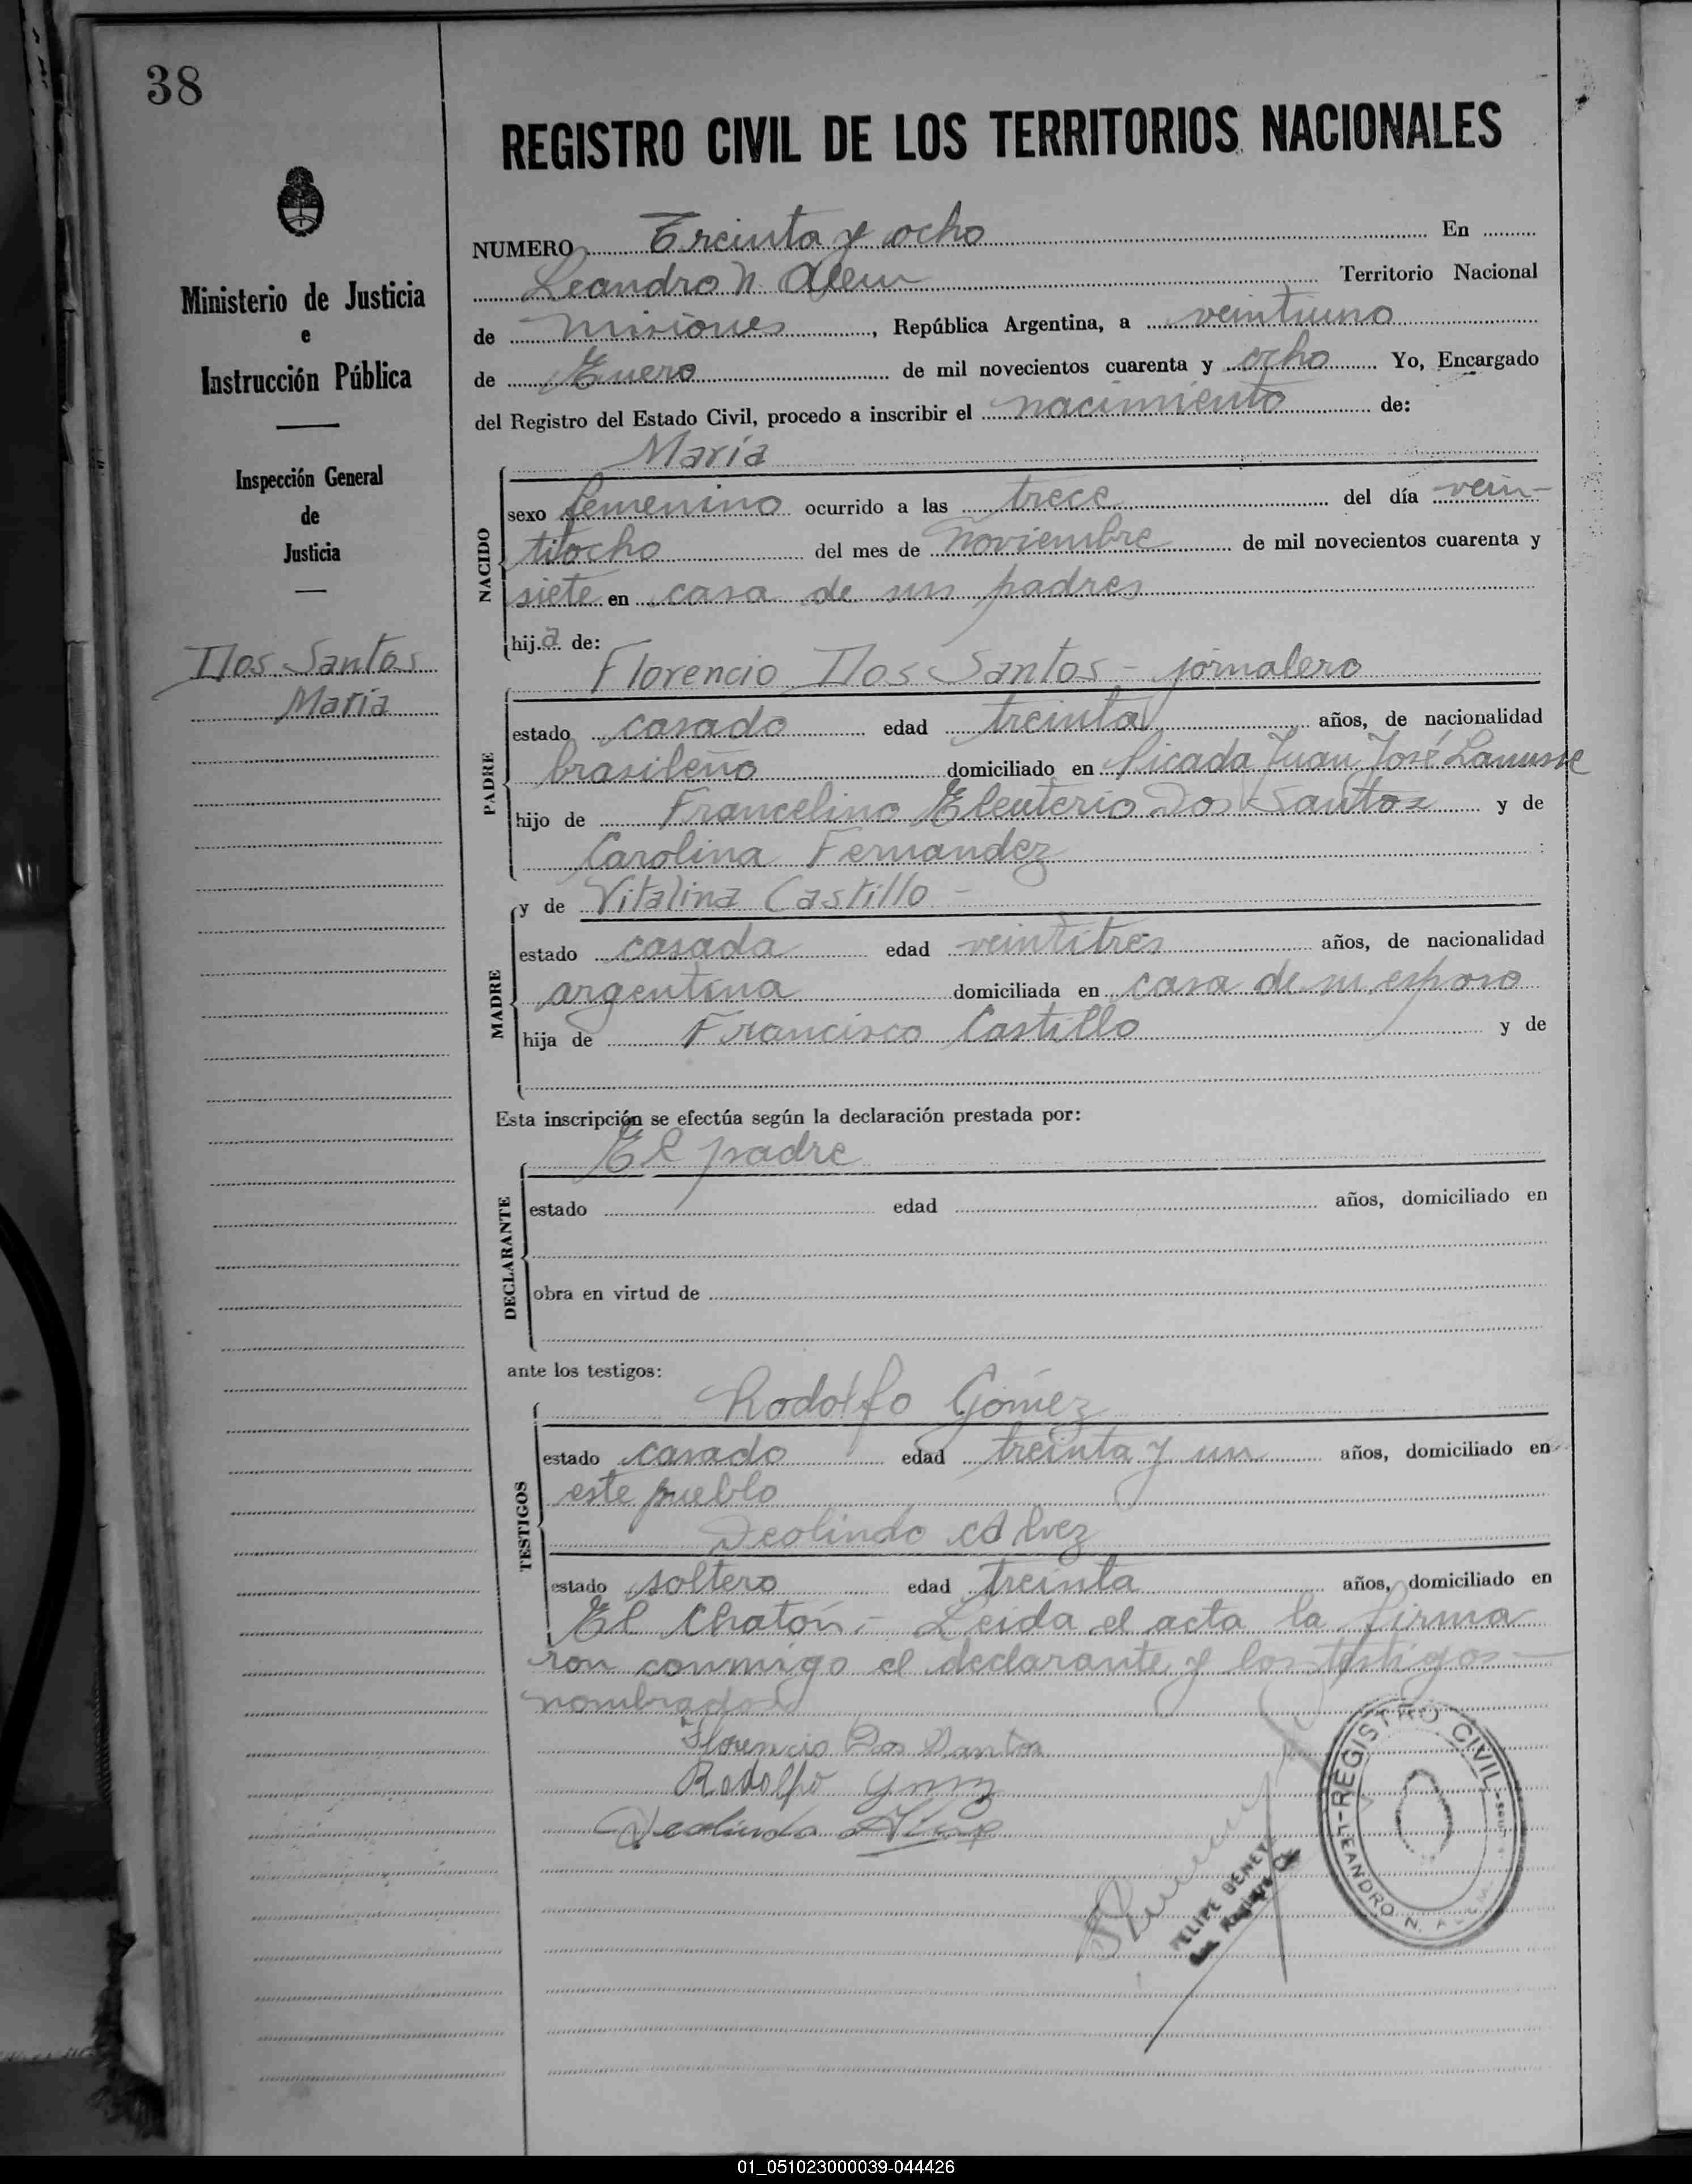 38
REGISTRO CIVIL DE LOS TERRITORIOS NACIONALES
Ministerio de Justicia
e
Instrucción Pública
Inspección General
de
Justicia
Dos Santos
María
NUMERO Treinta y ocho En
Leandro N. Alem Territorio Nacional
de Misiones, República Argentina, a veintiuno
de Enero de mil novecientos cuarenta y ocho Yo, Encargado
del Registro del Estado Civil, procedo a inscribir el nacimiento de:
María
NACIDO
sexo femenino ocurrido a las trece del día vein-
tiocho del mes de Noviembre de mil novecientos cuarenta y
siete en casa de sus padres
hija de:
Florencio Dos Santos - jornalero
PADRE
estado casado edad treinta años, de nacionalidad
brasileño domiciliado en Picada Juan José Lanusse
hijo de Francelino Eleuterio Dos Santos y de
Carolina Fernandez
y de Vitalina Castillo -
MADRE
estado casada edad veintitres años, de nacionalidad
argentina domiciliada en casa de su esposo
hija de Francisco Castillo y de
Esta inscripción se efectúa según la declaración prestada por:
El padre
DECLARANTE
estado edad años, domiciliado en
obra en virtud de
ante los testigos:
Rodolfo Gómez
TESTIGOS
estado casado edad treinta y un años, domiciliado en
este pueblo
Deolindo Alvez
estado soltero edad treinta años, domiciliado en
El Chatón.- Leida el acta la firma
ron conmigo el declarante y los testigos -
nombrados
Florencio Dos Santos
Rodolfo Gomez
Deolindo Alvez
FELIPE BENEY
REGISTRO CIVIL
LEANDRO N. ALEM
01_051023000039-044426